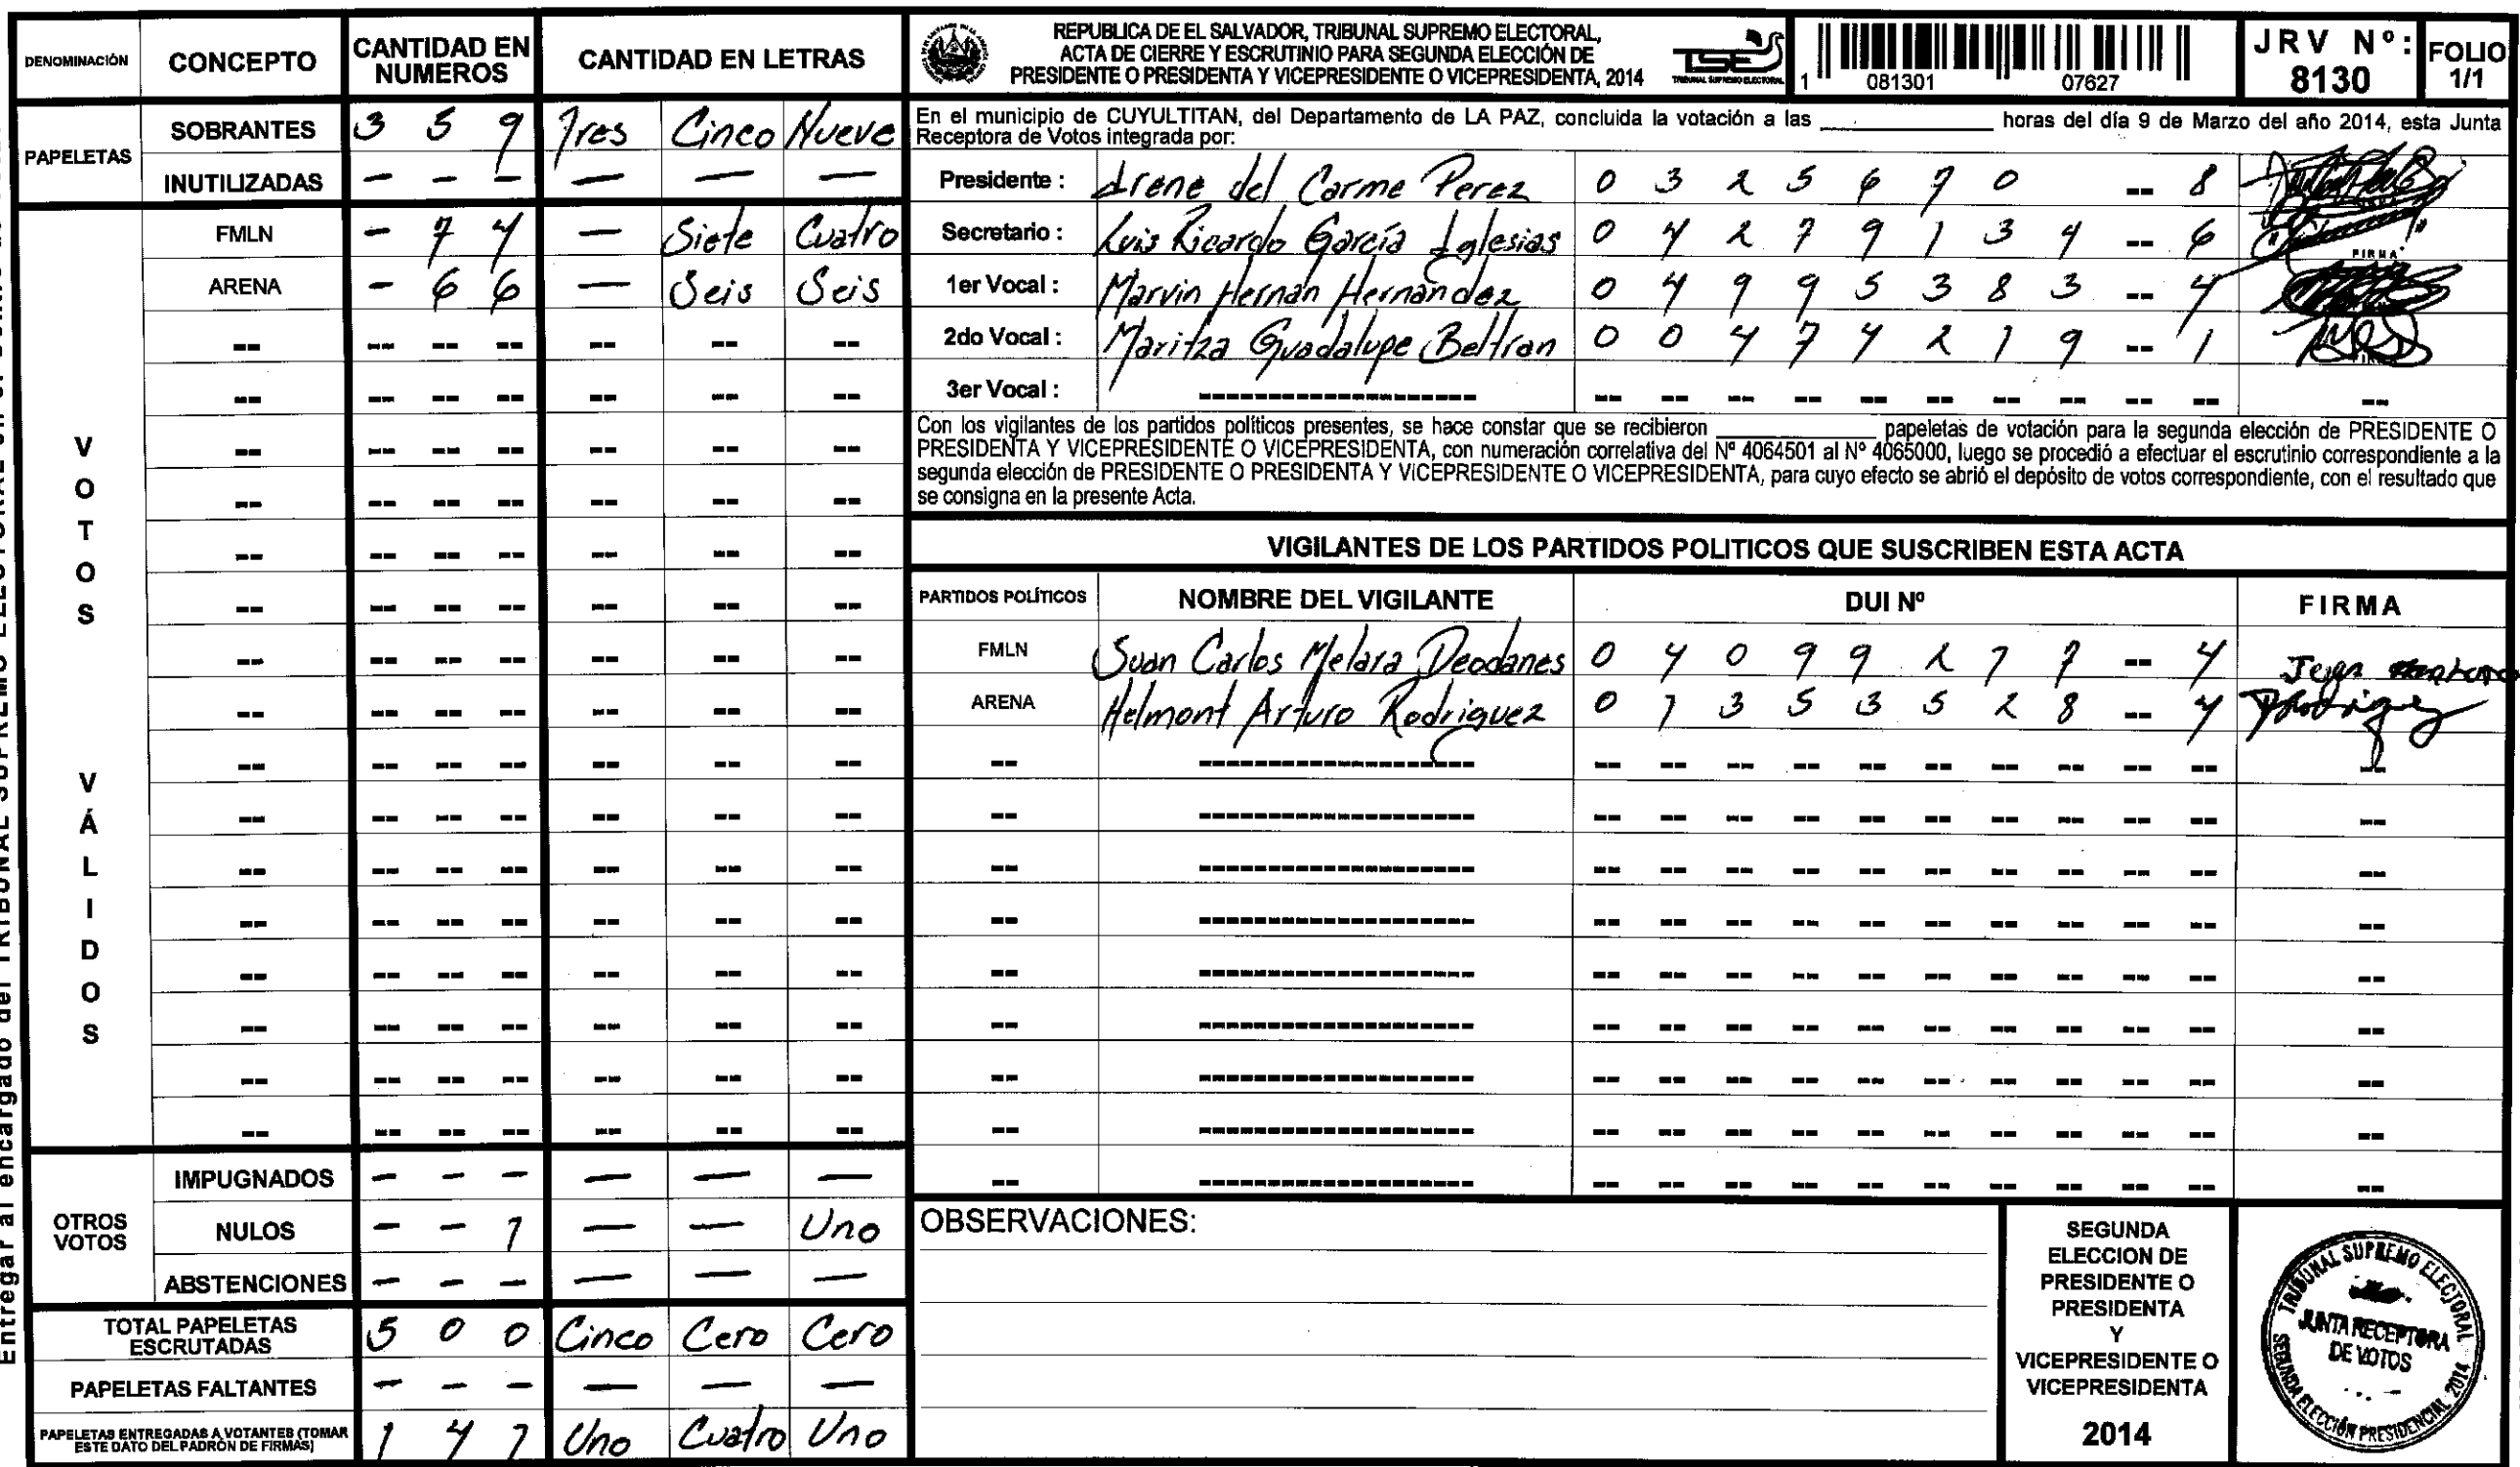 DENOMINACIÓN CONCEPTO CANTIDAD EN NUMEROS CANTIDAD EN LETRAS
PAPELETAS
SOBRANTES 3 5 9 Tres Cinco Nueve
INUTILIZADAS - - - - - -
VOTOS VÁLIDOS
FMLN - 7 4 - Siete Cuatro
ARENA - 6 6 - Seis Seis
OTROS VOTOS
IMPUGNADOS - - - - - -
NULOS - - 1 - - Uno
ABSTENCIONES - - - - - -
TOTAL PAPELETAS ESCRUTADAS 5 0 0 Cinco Cero Cero
PAPELETAS FALTANTES - - - - - -
PAPELETAS ENTREGADAS A VOTANTES (TOMAR ESTE DATO DEL PADRÓN DE FIRMAS) 1 4 1 Uno Cuatro Uno
REPUBLICA DE EL SALVADOR, TRIBUNAL SUPREMO ELECTORAL,
ACTA DE CIERRE Y ESCRUTINIO PARA SEGUNDA ELECCIÓN DE
PRESIDENTE O PRESIDENTA Y VICEPRESIDENTE O VICEPRESIDENTA, 2014
TSE
TRIBUNAL SUPREMO ELECTORAL
1 081301 07627
JRV Nº: 8130
FOLIO 1/1
En el municipio de CUYULTITAN, del Departamento de LA PAZ, concluida la votación a las ____ horas del día 9 de Marzo del año 2014, esta Junta
Receptora de Votos integrada por:
Presidente : Irene del Carme Perez 0 3 2 5 6 7 0 -- 8
Secretario : Luis Ricardo García Iglesias 0 4 2 7 9 1 3 4 -- 6
FIRMA
1er Vocal : Marvin Hernán Hernández 0 4 9 9 5 3 8 3 -- 4
2do Vocal : Maritza Guadalupe Beltran 0 0 4 7 4 2 1 9 -- 1
3er Vocal :
Con los vigilantes de los partidos políticos presentes, se hace constar que se recibieron ____ papeletas de votación para la segunda elección de PRESIDENTE O
PRESIDENTA Y VICEPRESIDENTE O VICEPRESIDENTA, con numeración correlativa del Nº 4064501 al Nº 4065000, luego se procedió a efectuar el escrutinio correspondiente a la
segunda elección de PRESIDENTE O PRESIDENTA Y VICEPRESIDENTE O VICEPRESIDENTA, para cuyo efecto se abrió el depósito de votos correspondiente, con el resultado que
se consigna en la presente Acta.
VIGILANTES DE LOS PARTIDOS POLITICOS QUE SUSCRIBEN ESTA ACTA
PARTIDOS POLÍTICOS NOMBRE DEL VIGILANTE DUI Nº FIRMA
FMLN Juan Carlos Melara Deodanes 0 4 0 9 9 2 7 7 -- 4
ARENA Helmont Arturo Rodriguez 0 1 3 5 3 5 2 8 -- 4 Rodriguez
OBSERVACIONES:
SEGUNDA
ELECCION DE
PRESIDENTE O
PRESIDENTA
Y
VICEPRESIDENTE O
VICEPRESIDENTA
2014
TRIBUNAL SUPREMO ELECTORAL
JUNTA RECEPTORA
DE VOTOS
SEGUNDA ELECCIÓN PRESIDENCIAL 2014
Entregar al encargado del TRIBUNAL SUPREMO ELECTORAL